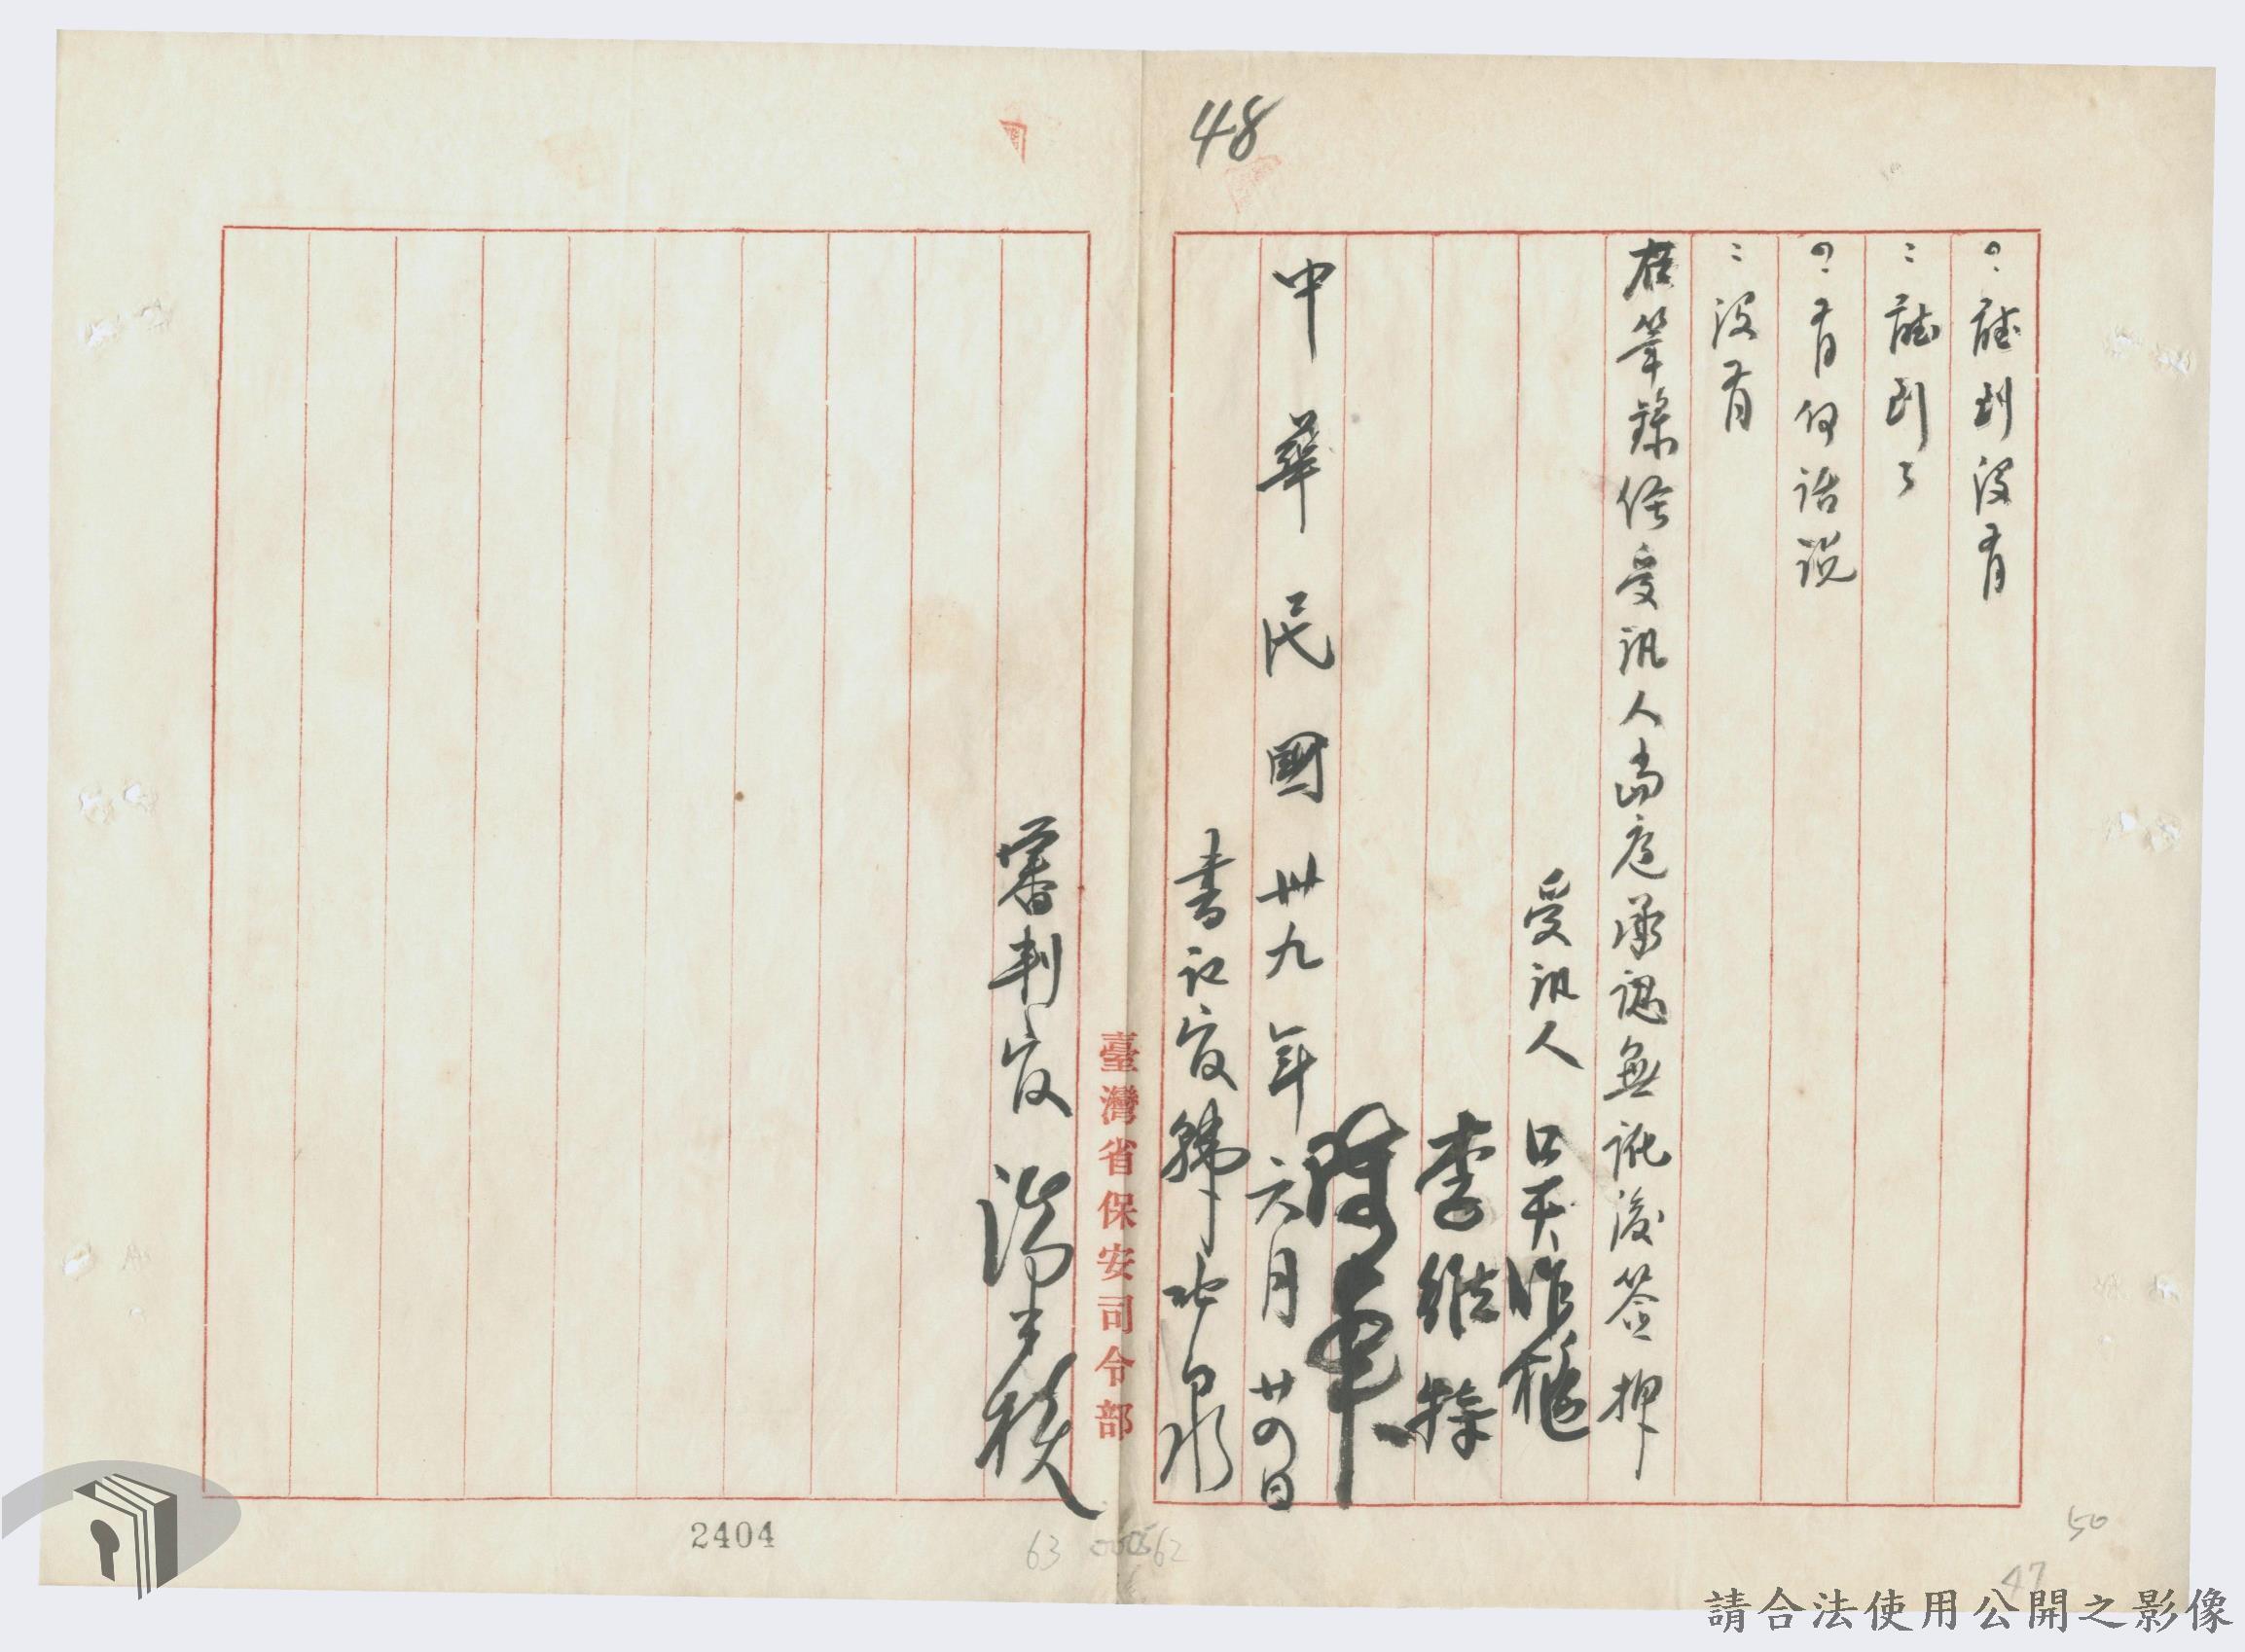 48
？聽到沒有
：聽到了
？有何話說
：沒有
右筆錄經受訊人當庭承認無訛後簽押
受訊人 吳作樞
李維特
陳華
中華民國卅九年六月廿四日
書記官韓
臺灣省保安司令部
審判官 湯
2404
63
62
50
47
請合法使用公開之影像